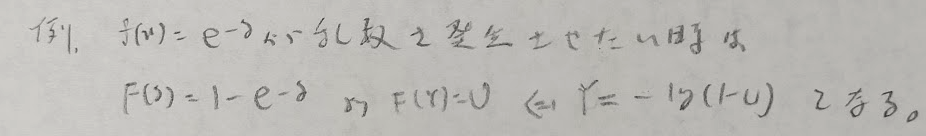 例. f(y) = e^{-y} から乱数を発生させたい時は
F(y) = 1 - e^{-y} より F(Y) = U ⇔ Y = - log(1-U) となる。